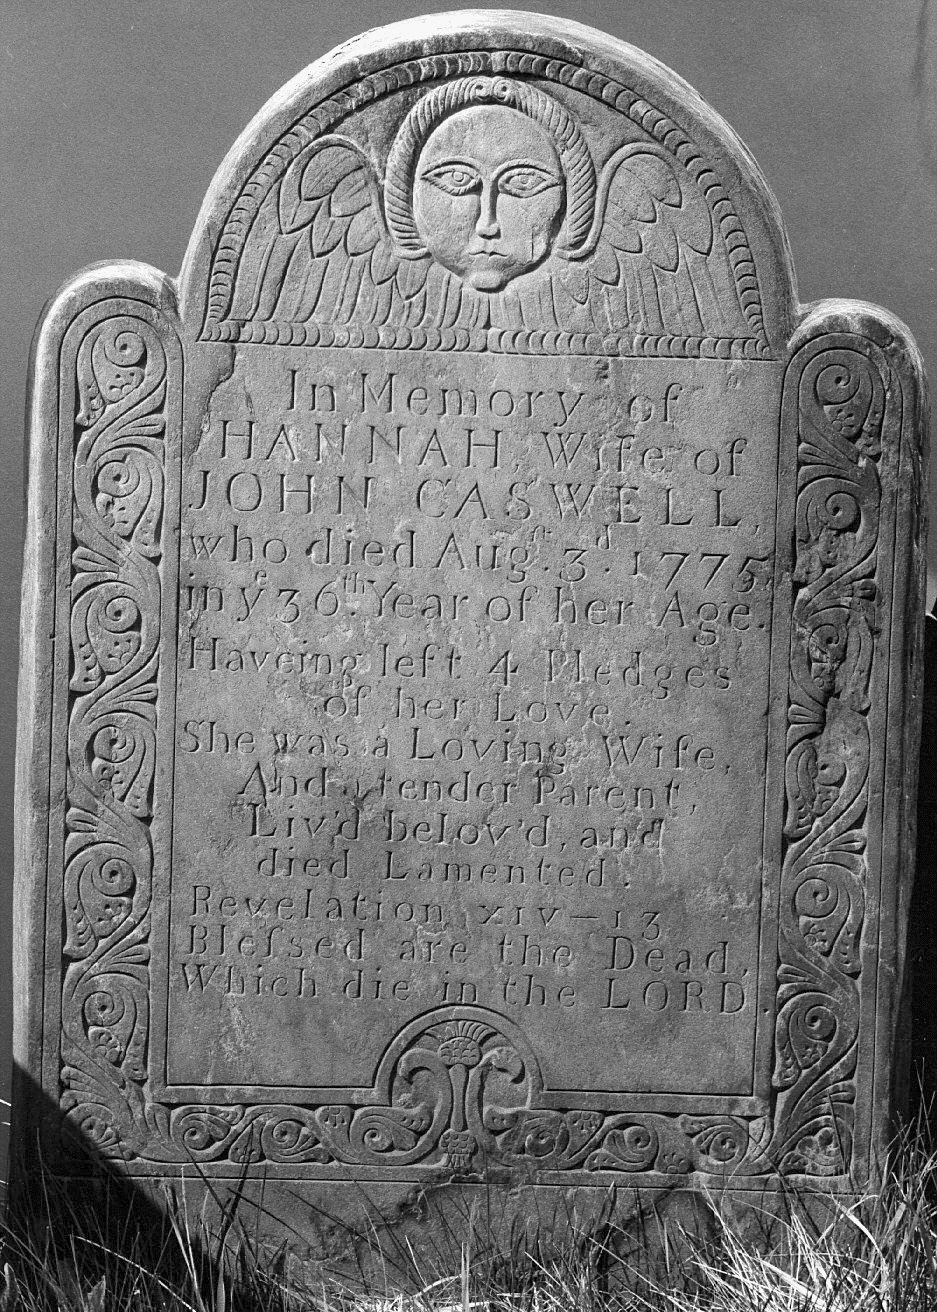 In Memory of
HANNAH, Wife of
JOHN CASWELL,
who died Augſt. 3d. 1775
in ye 36th Year of her Age.
Haveing left 4 Pledges
of her Love.
She was a Loving Wife,
And a tender Parent,
Liv'd belov'd, and
died Lamented.
Revelation XIV–13
Bleſsed are the Dead,
Which die in the LORD.